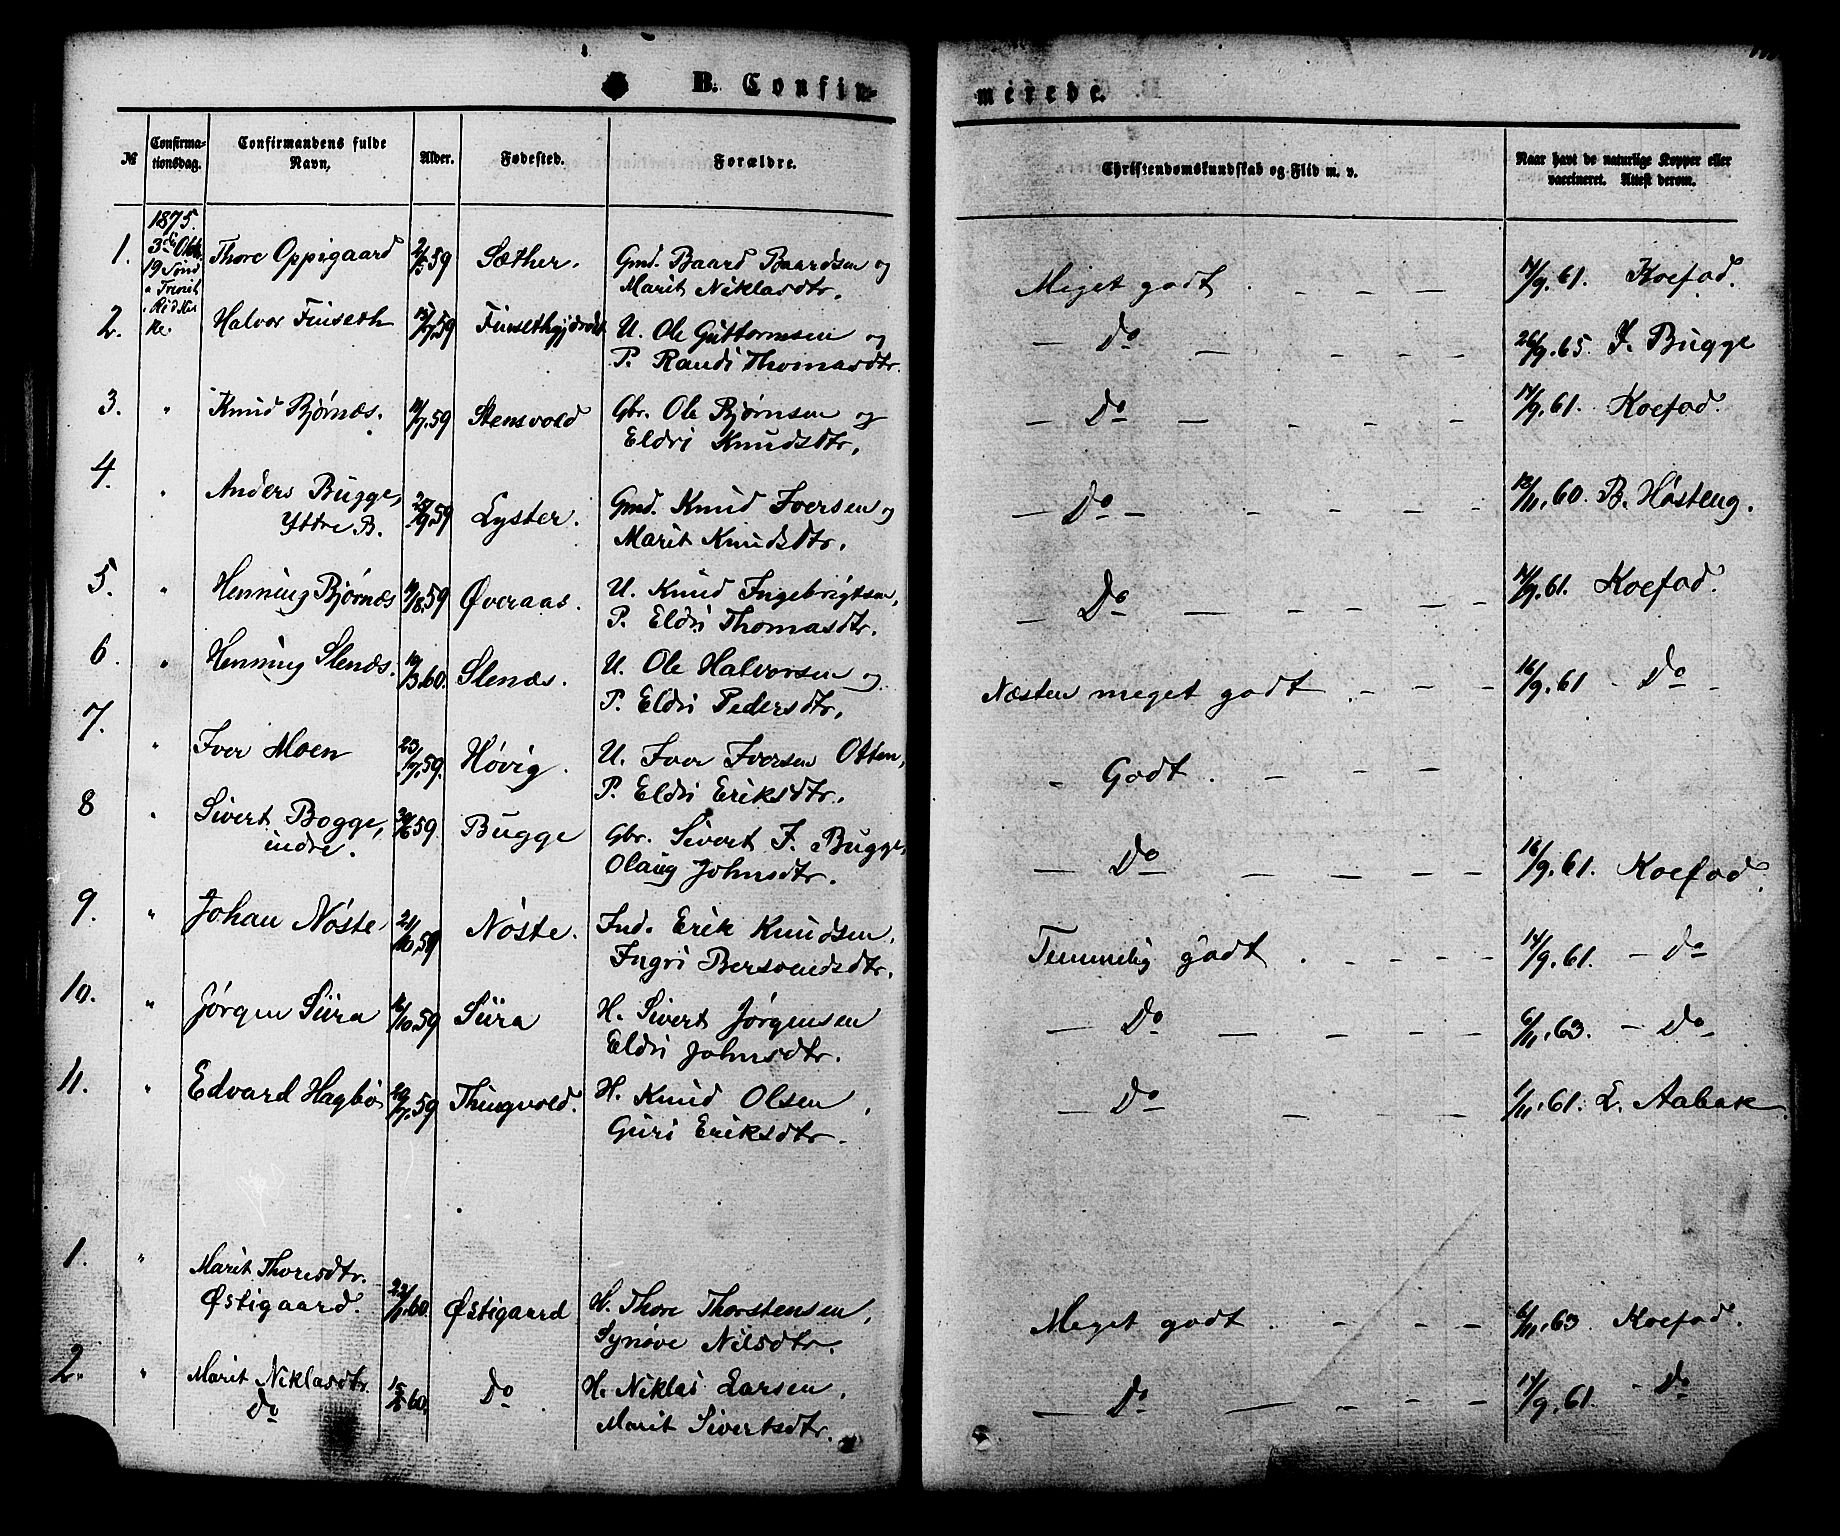 B. Confir-
merede.
№
Confirma-
tionsdag.
Confirmandens fulde
Navn,
Alder.
Fødested.
Forældre.
Christendomskundskab og Flid m. v.
Naar havt de naturlige Kopper eller
vaccineret. Attest derom.
1875.
3die Oktbr.
19 Sønd
1. Thore Oppigaard 59 Sæther. Gmd. Baard Baardsen og
Marit Niklasdtr. Meget godt . - - - - 17/9.61. Koefod.
2. Halvor Finseth 59 U. Ole Guttormsen og
P. Randi Thomasdtr. — Do — - - - 26/9.65. J. Bugge
3. " Knud Bjørnæs. 59 Stensvold Gbr. Ole Bjørnsen og
Eldri Knudsdtr. - Do — - - - - 17/9.61. Koefod.
4. " Anders Bugge,
Ytdre B. 59 Lyster. Gmd. Knud Iversen og
Marit Knudsdtr. — Do — - - - - 60. B. Høsteng.
5. " Henning Bjørnæs 59 Øveraas. U. Knud Ingebrigtsen,
P. Eldri Thomasdtr. - Do — - - - - 17/9.61. Koefod.
6. " Henning Slenæs. 19/3.60. Slenæs. U. Ole Halvorsen og
P. Eldri Pedersdtr. Næsten meget godt . - - - 16/9.61 - Do -
7. " Iver Moen 23/7.59. Høvig. U. Iver Iversen Otten,
P. Eldri Eriksdtr. - Godt . - - -
8 " Sivert Bogge,
indre. 59. Bugge Gbr. Sivert I. Bugge,
Olaug Johnsdtr. — Do — - - - - 16/9.61. Koefod.
9. " Johan Nøste, 21/10.59 Nøste. Ind. Erik Knudsen,
Ingri Bersvendsdtr. Temmelig godt . - - - - 14/9.61. - Do
10. " Jørgen Siira 59 Siira H. Sivert Jørgensen
Eldri Johnsdtr. — Do — - - - - 6/11.63. - Do -
11. " Edvard Hagbø 59 Thingvold. H. Knud Olsen,
Guri Eriksdtr. — Do — - - - - 61. L. Aabak
1. " Marit Thoresdtr.
Østigaard. 60. Østigaard H. Thore Thorstensen,
Synøve Nilsdtr. Meget godt . - - - - 6/11.63 Koefod.
2. " Marit Niklasdtr.
Do 60. Do H. Niklai Larsen,
Marit Sivertsdtr. — Do — - - - - 17/9.61. - Do